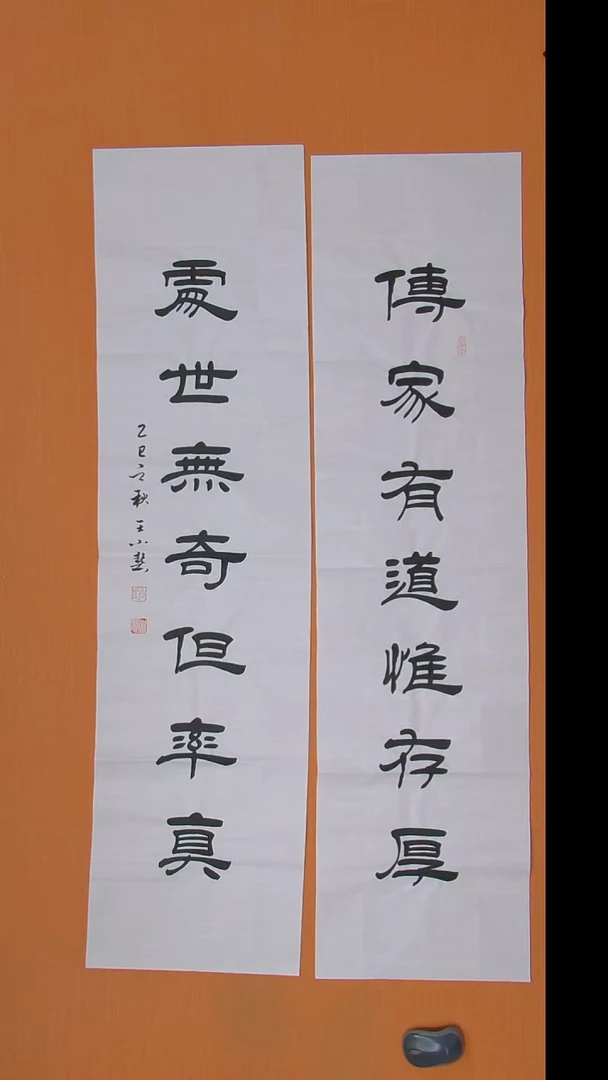 傳家有道惟存厚
處世無奇但率真
乙巳之秋王小慧